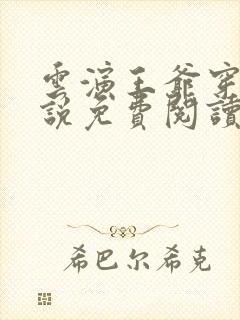 雲演王爺穿
說免費閱讀
希巴尔希克